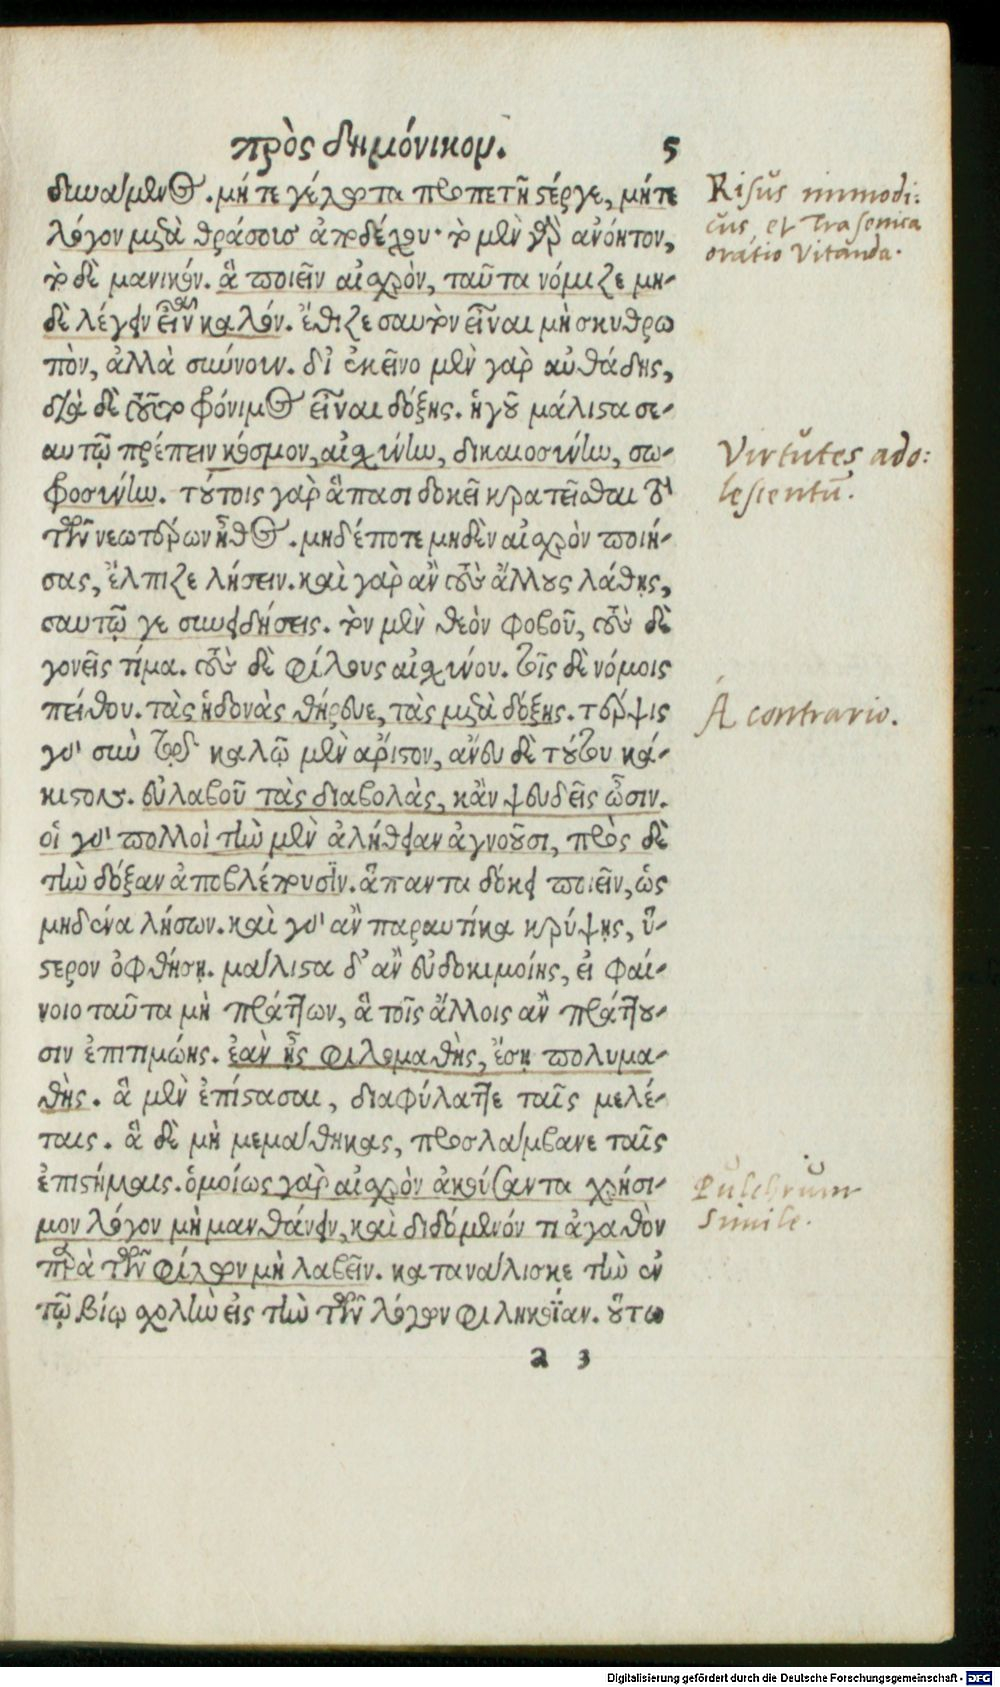 πρὸς δημόνικον. 5
δυνάμενος. μήτε γέλωτα προπετῆ στέργε, μήτε
λόγον μετὰ θράσους ἀποδέχου· τὸ μὲν γὰρ ἀνόητον,
τὸ δὲ μανικόν. ἃ ποιεῖν αἰσχρὸν, ταῦτα νόμιζε μη-
δὲ λέγειν εἶναι καλόν. ἔθιζε σαυτὸν εἶναι μὴ σκυθρω
πὸν, ἀλλὰ σύννουν. δι' ἐκεῖνο μὲν γὰρ αὐθάδης,
διὰ δὲ τοῦτο φρόνιμος εἶναι δόξης. ἡγοῦ μάλιστα σε-
αυτῷ πρέπειν κόσμον, αἰσχύνην, δικαιοσύνην, σω-
φροσύνην. τούτοις γὰρ ἅπασι δοκεῖ κρατεῖσθαι τὸ
τῶν νεωτέρων ἦθος. μηδέποτε μηδὲν αἰσχρὸν ποιή-
σας, ἔλπιζε λήσειν. καὶ γὰρ ἂν τοὺς ἄλλους λάθῃς,
σαυτῷ γε συνειδήσεις. τὸν μὲν θεὸν φοβοῦ, τοὺς δὲ
γονεῖς τίμα. τοὺς δὲ φίλους αἰσχύνου. τοῖς δὲ νόμοις
πείθου. τὰς ἡδονὰς θήρευε, τὰς μετὰ δόξης. τέρψις
γὰρ σὺν τῷ καλῷ μὲν ἄριστον, ἄνευ δὲ τούτου κά-
κιστον. εὐλαβοῦ τὰς διαβολὰς, κἂν ψευδεῖς ὦσιν.
οἱ γὰρ πολλοὶ τὴν μὲν ἀλήθειαν ἀγνοοῦσι, πρὸς δὲ
τὴν δόξαν ἀποβλέπουσιν. ἅπαντα δόκει ποιεῖν, ὡς
μηδένα λήσων. καὶ γὰρ ἂν παραυτίκα κρύψῃς, ὕ-
στερον ὀφθήσῃ. μάλιστα δ' ἂν εὐδοκιμοίης, εἰ φαί-
νοιο ταῦτα μὴ πράττων, ἃ τοῖς ἄλλοις ἂν πράττου-
σιν ἐπιτιμώης. ἐὰν ᾖς φιλομαθὴς, ἔσῃ πολυμα-
θὴς. ἃ μὲν ἐπίστασαι, διαφύλαττε ταῖς μελέ-
ταις. ἃ δὲ μὴ μεμάθηκας, προσλάμβανε ταῖς
ἐπιστήμαις. ὁμοίως γὰρ αἰσχρὸν ἀκούσαντα χρήσι-
μον λόγον μὴ μανθάνειν, καὶ διδόμενόν τι ἀγαθὸν
παρὰ τῶν φίλων μὴ λαβεῖν. κατανάλισκε τὴν ἐν
τῷ βίῳ σχολὴν εἰς τὴν τῶν λόγων φιληκοΐαν. οὕτω
a 3
Risus immodi:
cus et Trasonica
oratio vitanda.
Virtutes ado:
lescentū.
A contrario.
Pulchrum
simile.
Digitalisierung gefördert durch die Deutsche Forschungsgemeinschaft - DFG